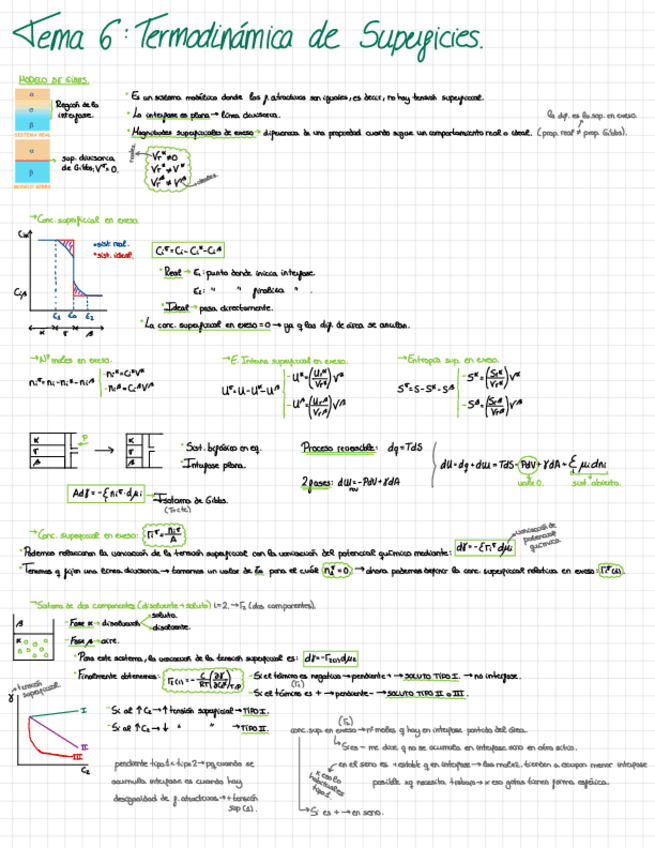 Tema 6: Termodinámica de Superficies.
MODELO DE GIBBS.
α
Región de la
σ
interfase.
β
SISTEMA REAL
α
sup. divisoria
de Gibbs, Vσ=0.
β
MODELO GIBBS
· Es un sistema modélico donde las f. atractivas son iguales, es decir, no hay tensión superficial.
· La interfase es plana → línea divisoria.
· Magnitudes superficiales de exceso → diferencia de una propiedad cuando sigue un comportamiento real o ideal. (prop. real ≠ prop. Gibbs).
la dif. es la sup. en exceso.
→ Conc. superficial en exceso.
· sist. real.
· sist. ideal.
Ciσ = Ci - Ciα - Ciβ
· Real → ε1: punto donde inicia interfase.
ε2: " " finaliza " .
· Ideal → pasa directamente.
· La conc. superficial en exceso = 0 → ya q las dif. de área se anulan.
→ Nº moles en exceso.
niσ = ni - niα - niβ
- niα = Ciα Vα
- niβ = Ciβ Vβ
→ E. Interna superficial en exceso.
Uσ = U - Uα - Uβ
→ Entropía sup. en exceso.
Sσ = S - Sα - Sβ
· Sist. bifásico en eq.
· Interfase plana.
Adγ = -Σ niσ · dμi → Isoterma de Gibbs.
(T=cte)
Proceso reversible: dq = TdS
2 fases: dω = -PdV + γdA
dU = dq + dω = TdS - PdV + γdA + Σ μi dni
vale 0.
sist. abierto.
→ Conc. superficial en exceso: Γiσ = niσ/A
· Podemos relacionar la variación de la tensión superficial con la variación del potencial químico mediante: dγ = -Σ Γiσ dμi
variación de potencial químico.
· Tenemos q fijar una línea divisoria → tomamos un valor de ε0 para el cuál n1σ = 0 → ahora podemos definir la conc. superficial relativa en exceso: Γiσ(1).
→ Sistema de dos componentes (disolvente + soluto) i=2, → Γ2 (dos componentes).
- Fase α → disolución
soluto.
disolvente.
- Fase β → aire.
· Para este sistema, la variación de la tensión superficial es: dγ = -Γ2(1) dμ2
· Finalmente obtenemos:
- Si el término es negativo → pendiente + → SOLUTO TIPO I. → no interfase.
- Si el término es + → pendiente - → SOLUTO TIPO II o III.
γ
tensión superficial.
I
II
III
C2
- Si al ↑C2 → ↑ tensión superficial → TIPO I.
- Si al ↑C2 → ↓ " " → TIPO II
pendiente tipo 1 < tipo 2 → pq cuando se
acumula interfase es cuando hay
desigualdad de f. atractivas → + tensión
sup (1).
conc. sup. en exceso → nº moles q hay en interfase partido del área.
→ Si es - me dice q no se acumula en interfase sino en otro sitio.
en el seno es + estable q en interfase → las moléc. tienden a ocupar menor interfase
posible xq necesita trabajo → x eso gotas tienen forma esférica.
→ Si es + → en seno.